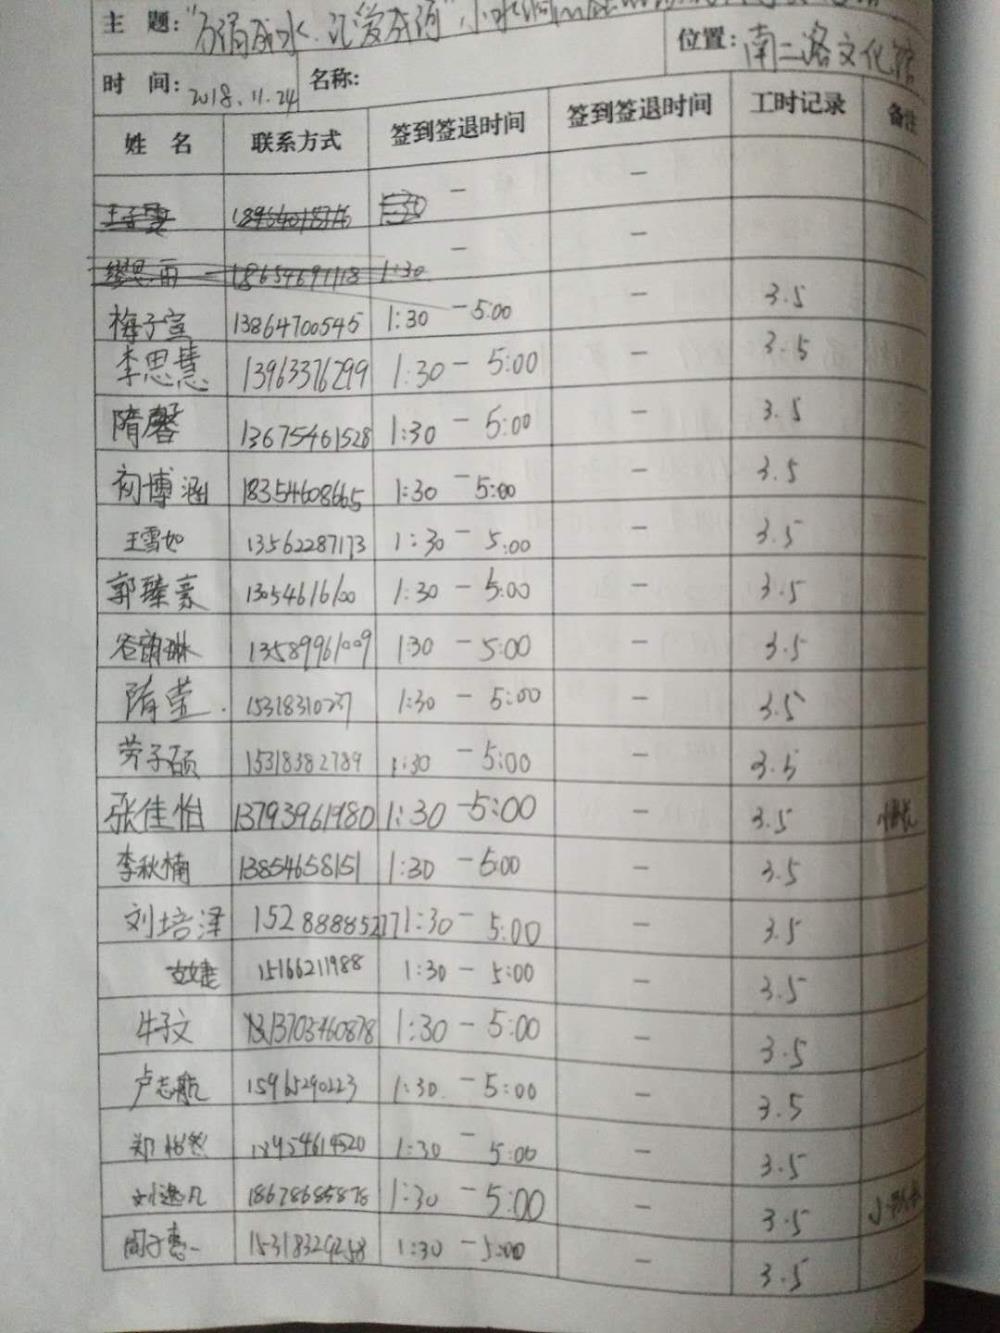 主 题:"万滴成水.汇爱成河",小水滴
时 间:2018.11.24 名称: 位置:南二路文化馆
姓 名 联系方式 签到签退时间 签到签退时间 工时记录 备注
王子雯 - -
缪思雨 18654691118 1:30 - -
梅子宣 13864700545 1:30 - 5:00 - 3.5
李思慧 13963376299 1:30 - 5:00 - 3.5
隋馨 13675461528 1:30 - 5:00 - 3.5
初博涵 18354608665 1:30 - 5:00 - 3.5
王雪如 13562287173 1:30 - 5:00 - 3.5
郭臻豪 13054616100 1:30 - 5:00 - 3.5
13589961009 1:30 - 5:00 - 3.5
隋莹. 15318310237 1:30 - 5:00 - 3.5
劳子硕 15318382789 1:30 - 5:00 - 3.5
张佳怡 13793961980 1:30 - 5:00 - 3.5
李秋楠 13854658151 1:30 - 5:00 - 3.5
刘培泽 15288885277 1:30 - 5:00 - 3.5
15166211988 1:30 - 5:00 - 3.5
牛子文 13703460878 1:30 - 5:00 - 3.5
卢志航 15965290223 1:30 - 5:00 - 3.5
郑悠然 18954614520 1:30 - 5:00 - 3.5
刘逸凡 18678685878 1:30 - 5:00 - 3.5 小队长
周子惠 15318329258 1:30 - 5:00 - 3.5